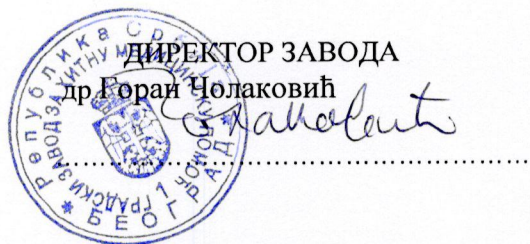 ДИРЕКТОР ЗАВОДА
др Горан Чолаковић
Република Србија
ГРАДСКИ ЗАВОД ЗА ХИТНУ МЕДИЦИНСКУ ПОМОЋ
1
* БЕОГРАД *